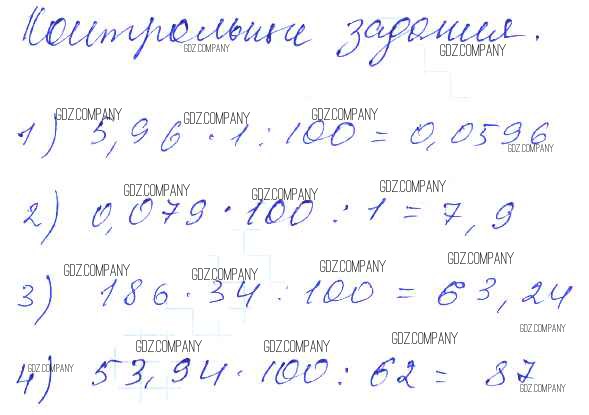 Контрольные задания.
GDZ.COMPANY GDZ.COMPANY
GDZ.COMPANY GDZ.COMPANY GDZ.COMPANY
1) 5,96 · 1 : 100 = 0,0596
GDZ.COMPANY
GDZ.COMPANY GDZ.COMPANY GDZ.COMPANY
2) 0,079 · 100 : 1 = 7,9
GDZ.COMPANY GDZ.COMPANY GDZ.COMPANY GDZ.COMPANY
3) 186 · 34 : 100 = 63,24
GDZ.COMPANY
GDZ.COMPANY GDZ.COMPANY GDZ.COMPANY
GDZ.COMPANY
4) 53,94 · 100 : 62 = 87
GDZ.COMPANY